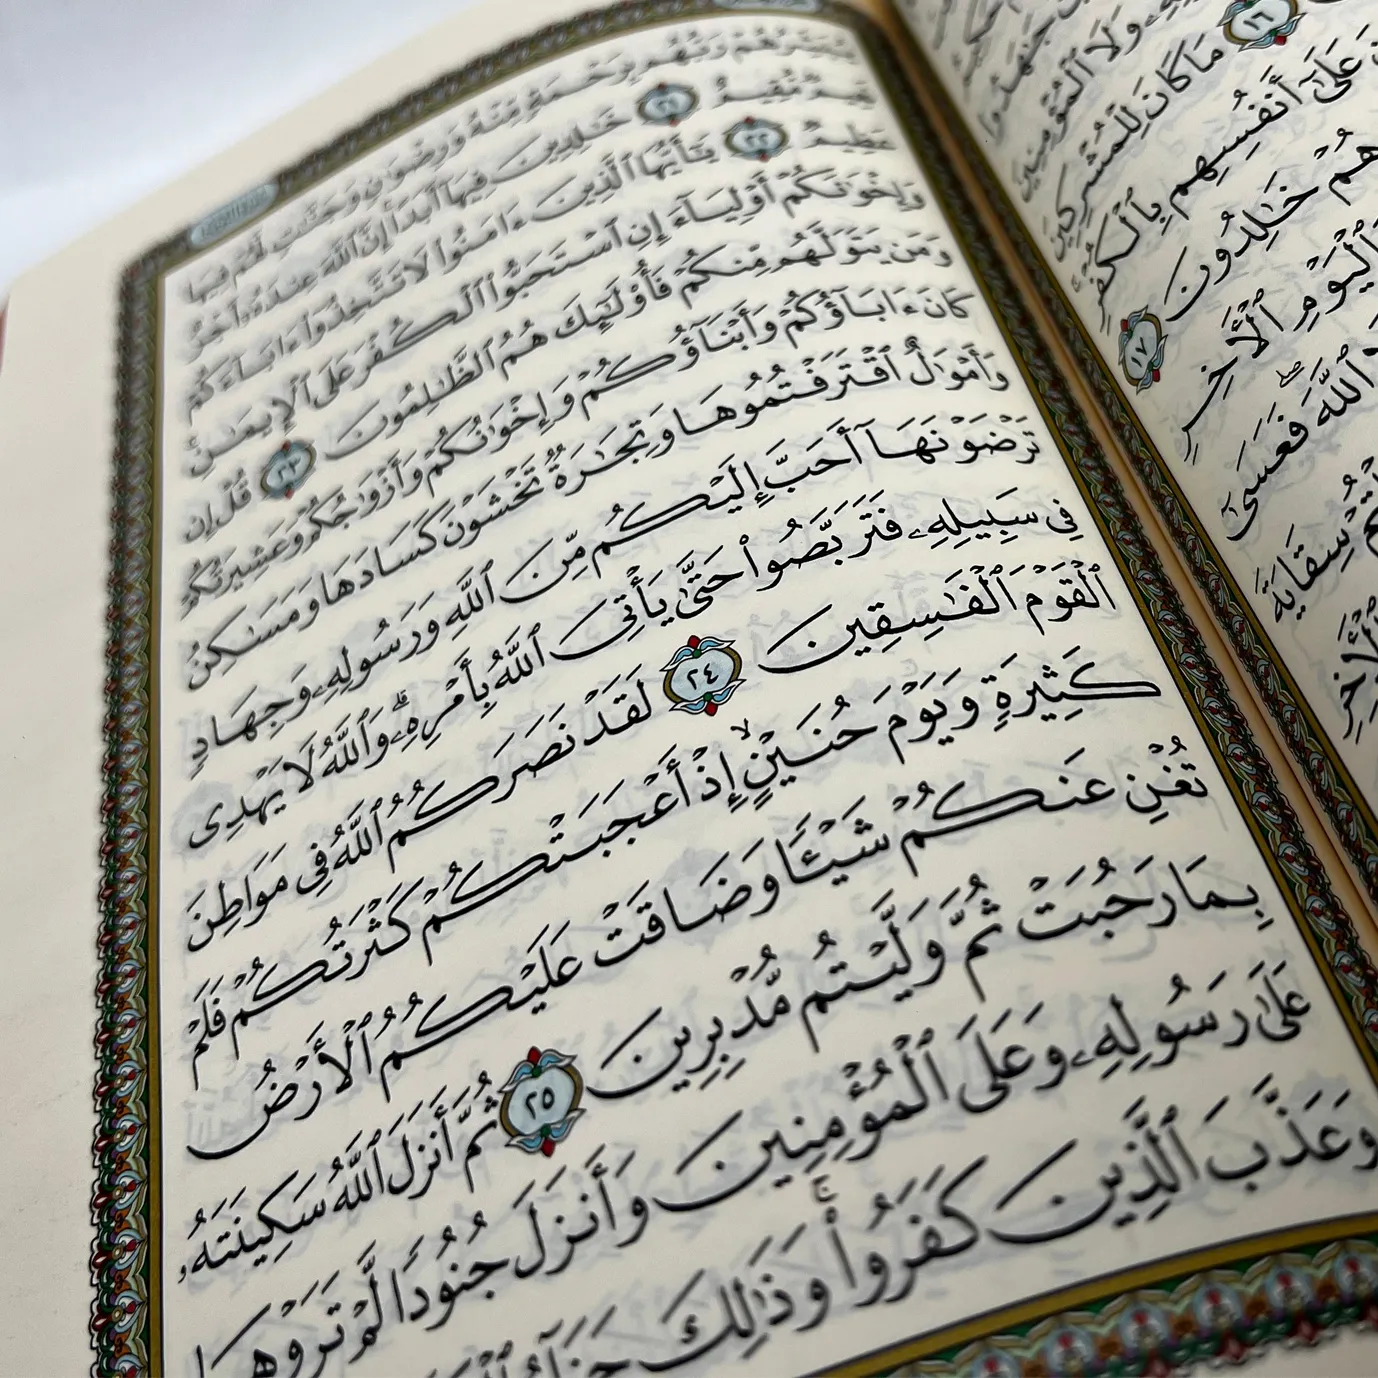 جَـٰهَدُوا۟
وَلَا ٱلْمُؤْمِنِينَ
١٦ مَا كَانَ لِلْمُشْرِكِينَ
عَلَىٰٓ أَنفُسِهِم بِٱلْكُفْرِ
هُمْ خَـٰلِدُونَ ١٧
وَٱلْيَوْمِ ٱلْـَٔاخِرِ
ٱللَّهَ ۖ فَعَسَىٰٓ
سِقَايَةَ
ٱلْـَٔاخِرِ
يُبَشِّرُهُمْ رَبُّهُم بِرَحْمَةٍ مِّنْهُ وَرِضْوَٰنٍ وَجَنَّـٰتٍ لَّهُمْ فِيهَا
نَعِيمٌ مُّقِيمٌ ٢١ خَـٰلِدِينَ فِيهَآ أَبَدًا إِنَّ ٱللَّهَ عِندَهُۥٓ أَجْرٌ
عَظِيمٌ ٢٢ يَـٰٓأَيُّهَا ٱلَّذِينَ ءَامَنُوا۟ لَا تَتَّخِذُوٓا۟ ءَابَآءَكُمْ
وَإِخْوَٰنَكُمْ أَوْلِيَآءَ إِنِ ٱسْتَحَبُّوا۟ ٱلْكُفْرَ عَلَى ٱلْإِيمَـٰنِ
وَمَن يَتَوَلَّهُم مِّنكُمْ فَأُو۟لَـٰٓئِكَ هُمُ ٱلظَّـٰلِمُونَ ٢٣ قُلْ إِن
كَانَ ءَابَآؤُكُمْ وَأَبْنَآؤُكُمْ وَإِخْوَٰنُكُمْ وَأَزْوَٰجُكُمْ وَعَشِيرَتُكُمْ
وَأَمْوَٰلٌ ٱقْتَرَفْتُمُوهَا وَتِجَـٰرَةٌ تَخْشَوْنَ كَسَادَهَا وَمَسَـٰكِنُ
تَرْضَوْنَهَآ أَحَبَّ إِلَيْكُم مِّنَ ٱللَّهِ وَرَسُولِهِۦ وَجِهَادٍ
فِى سَبِيلِهِۦ فَتَرَبَّصُوا۟ حَتَّىٰ يَأْتِىَ ٱللَّهُ بِأَمْرِهِۦ ۗ وَٱللَّهُ لَا يَهْدِى
ٱلْقَوْمَ ٱلْفَـٰسِقِينَ ٢٤ لَقَدْ نَصَرَكُمُ ٱللَّهُ فِى مَوَاطِنَ
كَثِيرَةٍ ۙ وَيَوْمَ حُنَيْنٍ ۙ إِذْ أَعْجَبَتْكُمْ كَثْرَتُكُمْ فَلَمْ
تُغْنِ عَنكُمْ شَيْـًٔا وَضَاقَتْ عَلَيْكُمُ ٱلْأَرْضُ
بِمَا رَحُبَتْ ثُمَّ وَلَّيْتُم مُّدْبِرِينَ ٢٥ ثُمَّ أَنزَلَ ٱللَّهُ سَكِينَتَهُۥ
عَلَىٰ رَسُولِهِۦ وَعَلَى ٱلْمُؤْمِنِينَ وَأَنزَلَ جُنُودًا لَّمْ تَرَوْهَا
وَعَذَّبَ ٱلَّذِينَ كَفَرُوا۟ ۚ وَذَٰلِكَ جَزَآءُ